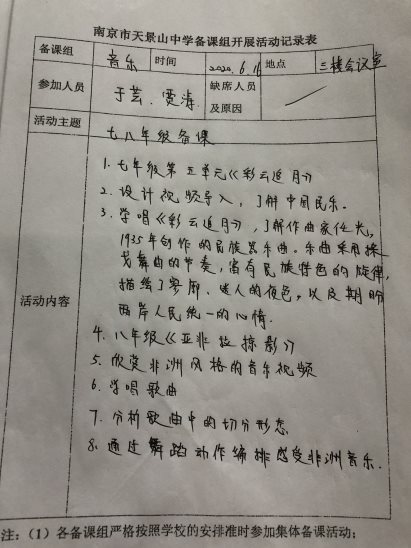 南京市天景山中学备课组开展活动记录表
备课组 音乐 时间 2020.6.16 地点 三楼会议室
参加人员 于芸、贾涛 缺席人员及原因
活动主题 七八年级备课
活动内容
1. 七年级第五单元《彩云追月》
2. 设计视频导入，了解中国民乐.
3. 学唱《彩云追月》，了解作曲家任光，
1935年创作的民族器乐曲。乐曲采用探
戈舞曲的节奏，富有民族特色的旋律，
描绘了寥廓、迷人的夜色，以及期盼
两岸人民统一的心情.
4. 八年级《亚非拉掠影》
5. 欣赏非洲风格的音乐视频
6. 学唱歌曲
7. 分析歌曲中的切分形态
8. 通过舞蹈动作编排感受非洲音乐.
注：（1）各备课组严格按照学校的安排准时参加集体备课活动；